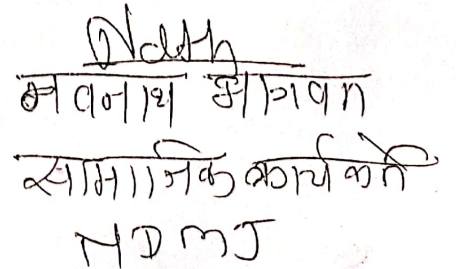 नवनाथ भागवत
सामाजिक कार्यकर्ते
NDMJ